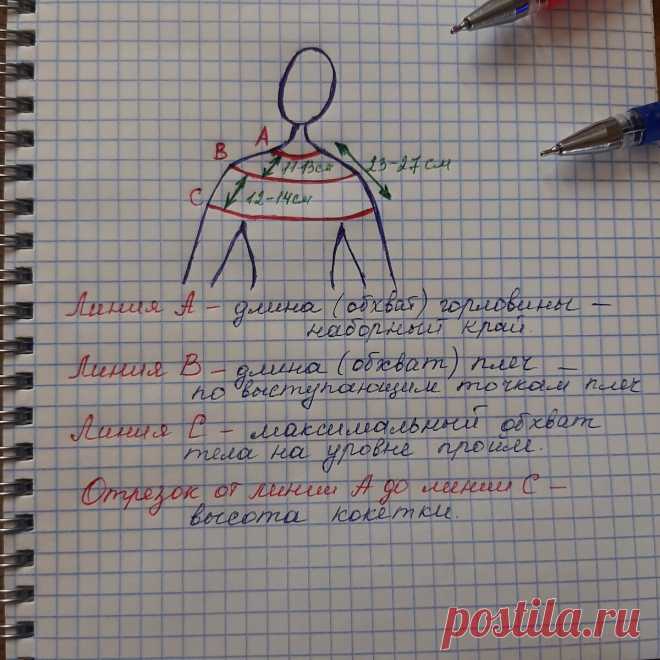 A
B
11-13см
23-27 см
C
12-14см
Линия А – длина (обхват) горловины –
наборный край.
Линия В – длина (обхват) плеч –
по выступающим точкам плеч
Линия С – максимальный обхват
тела на уровне пройм.
Отрезок от линии А до линии С –
высота кокетки.
postila.ru